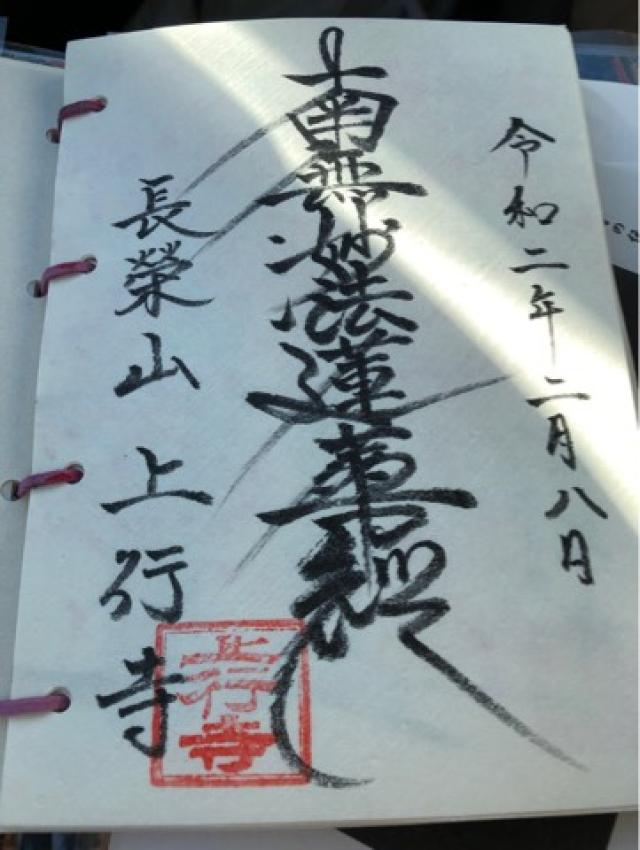 令和二年二月八日
南無妙法蓮華経
長榮山 上行寺
上行寺